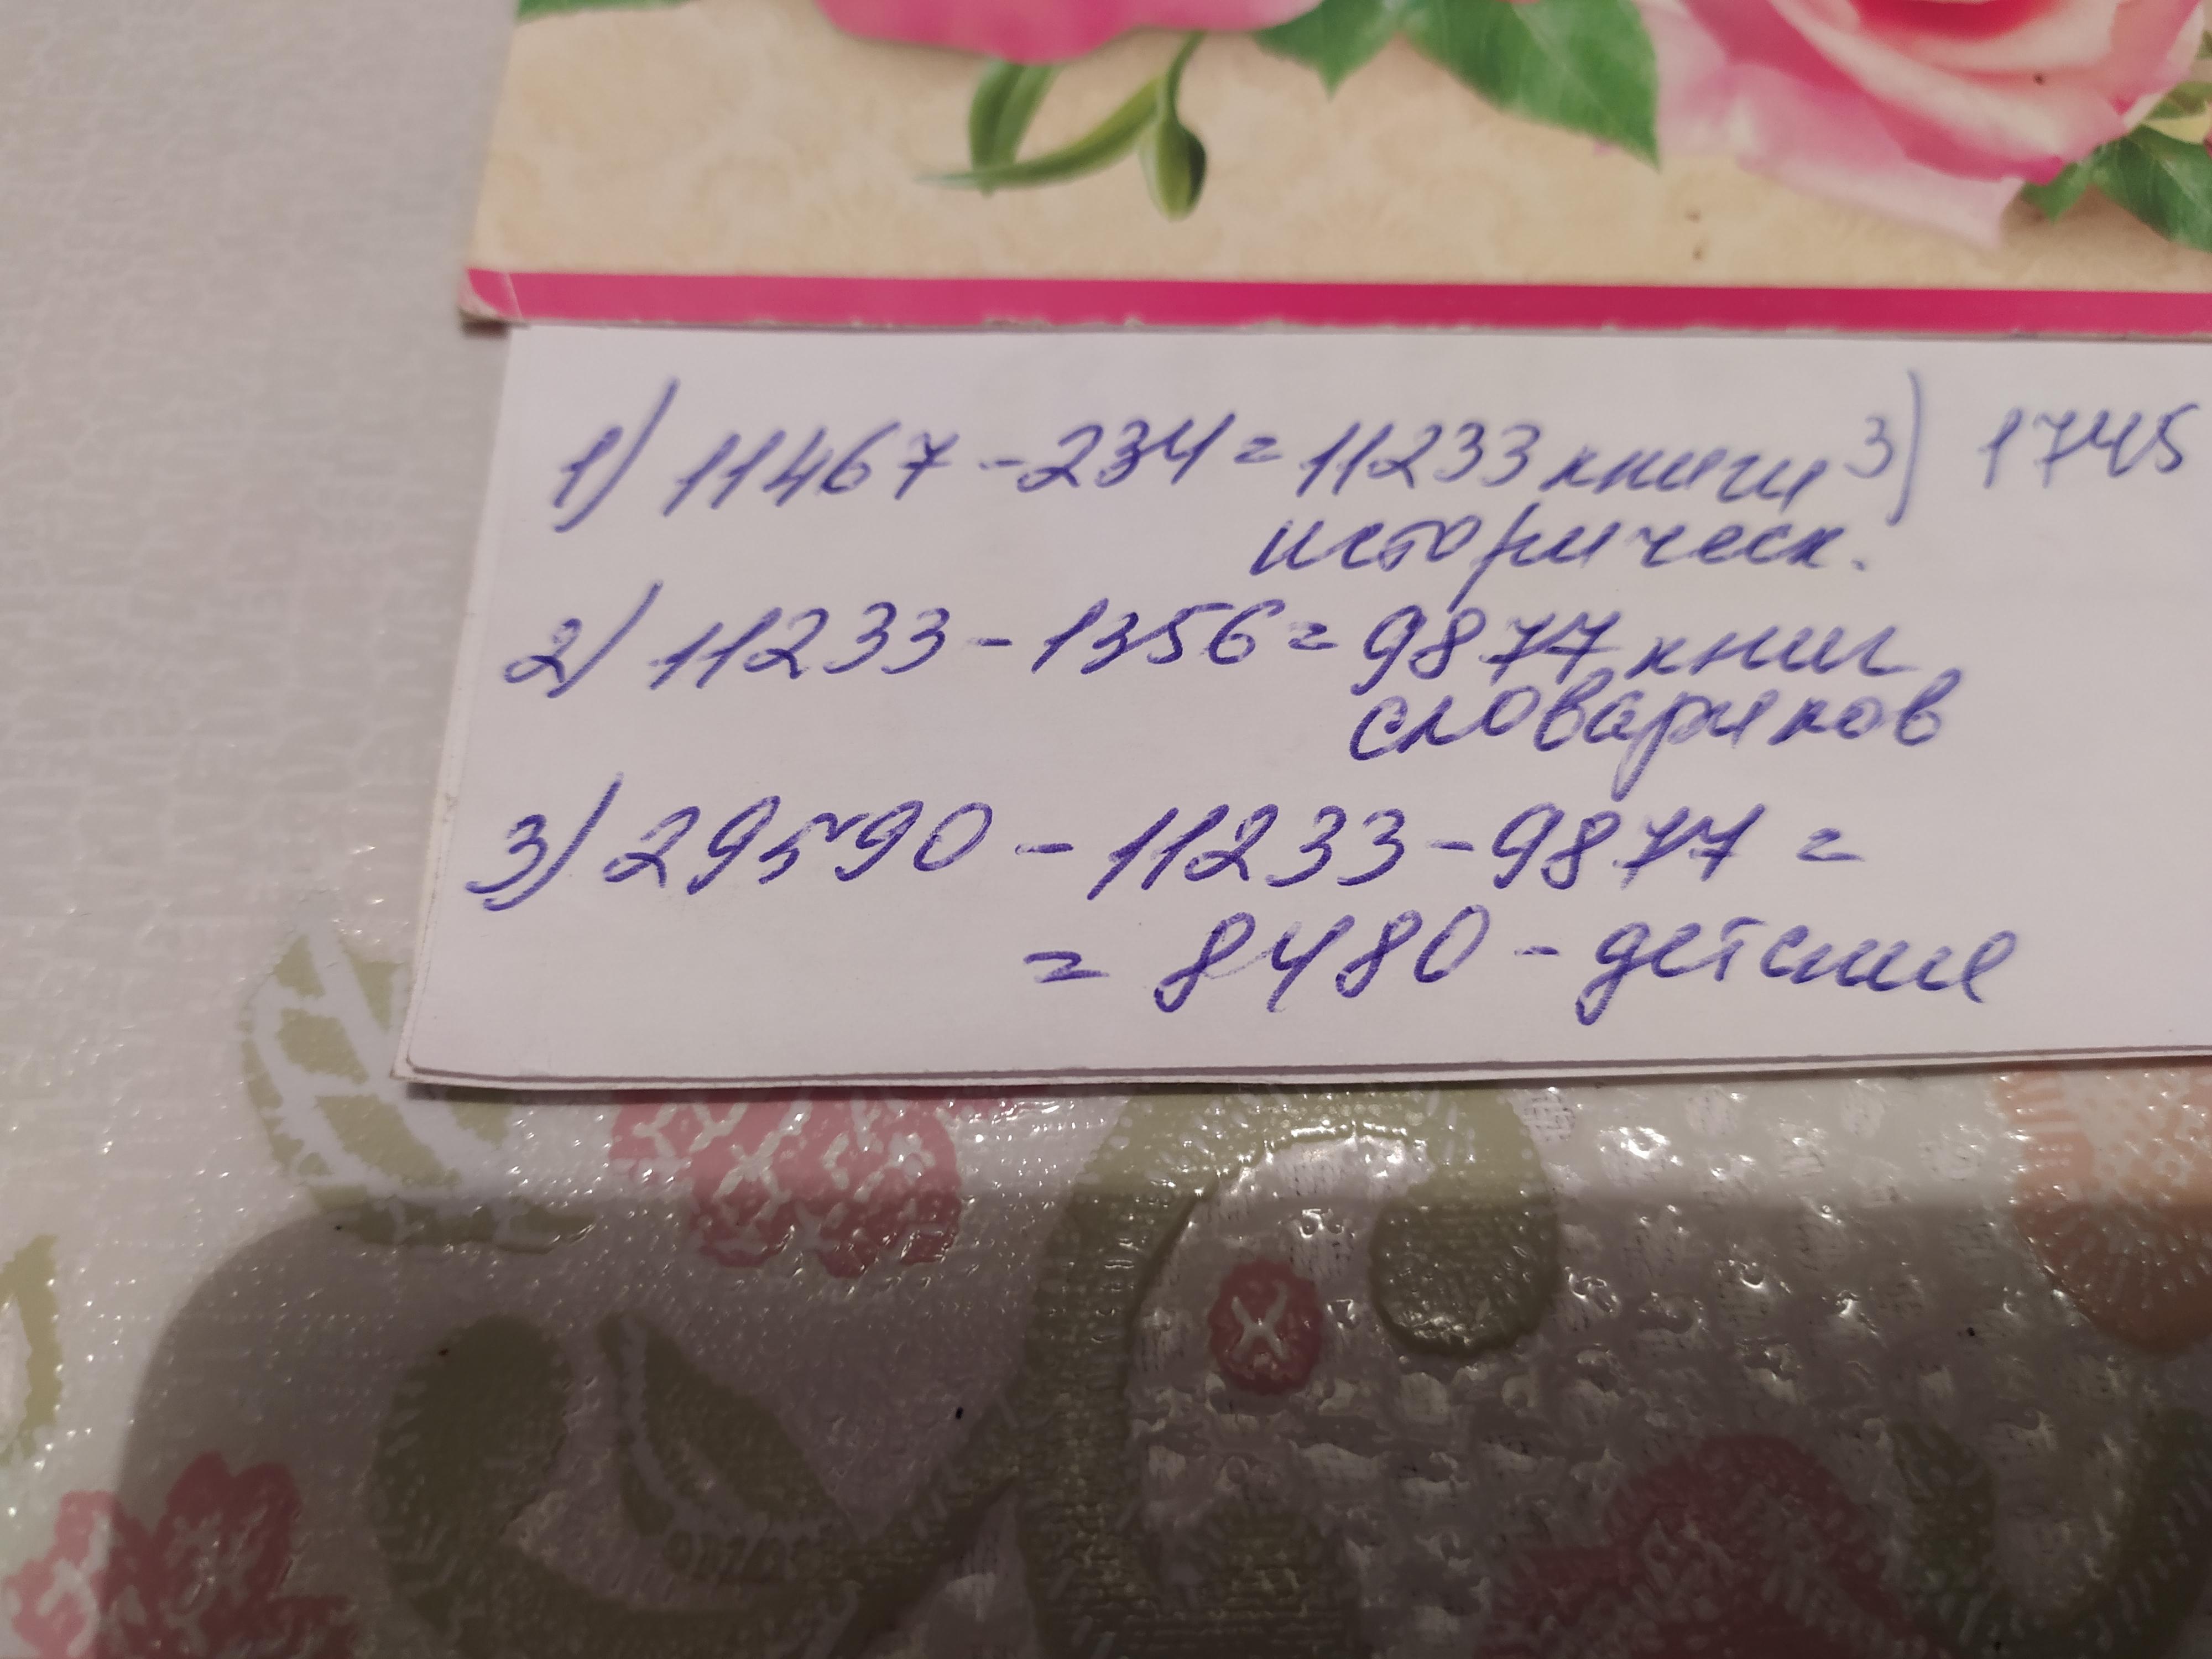 1) 11467 - 234 = 11233 книги
историческ.
2) 11233 - 1356 = 9877 книг
словариков
3) 29590 - 11233 - 9877 =
= 8480 - детские
3) 1745